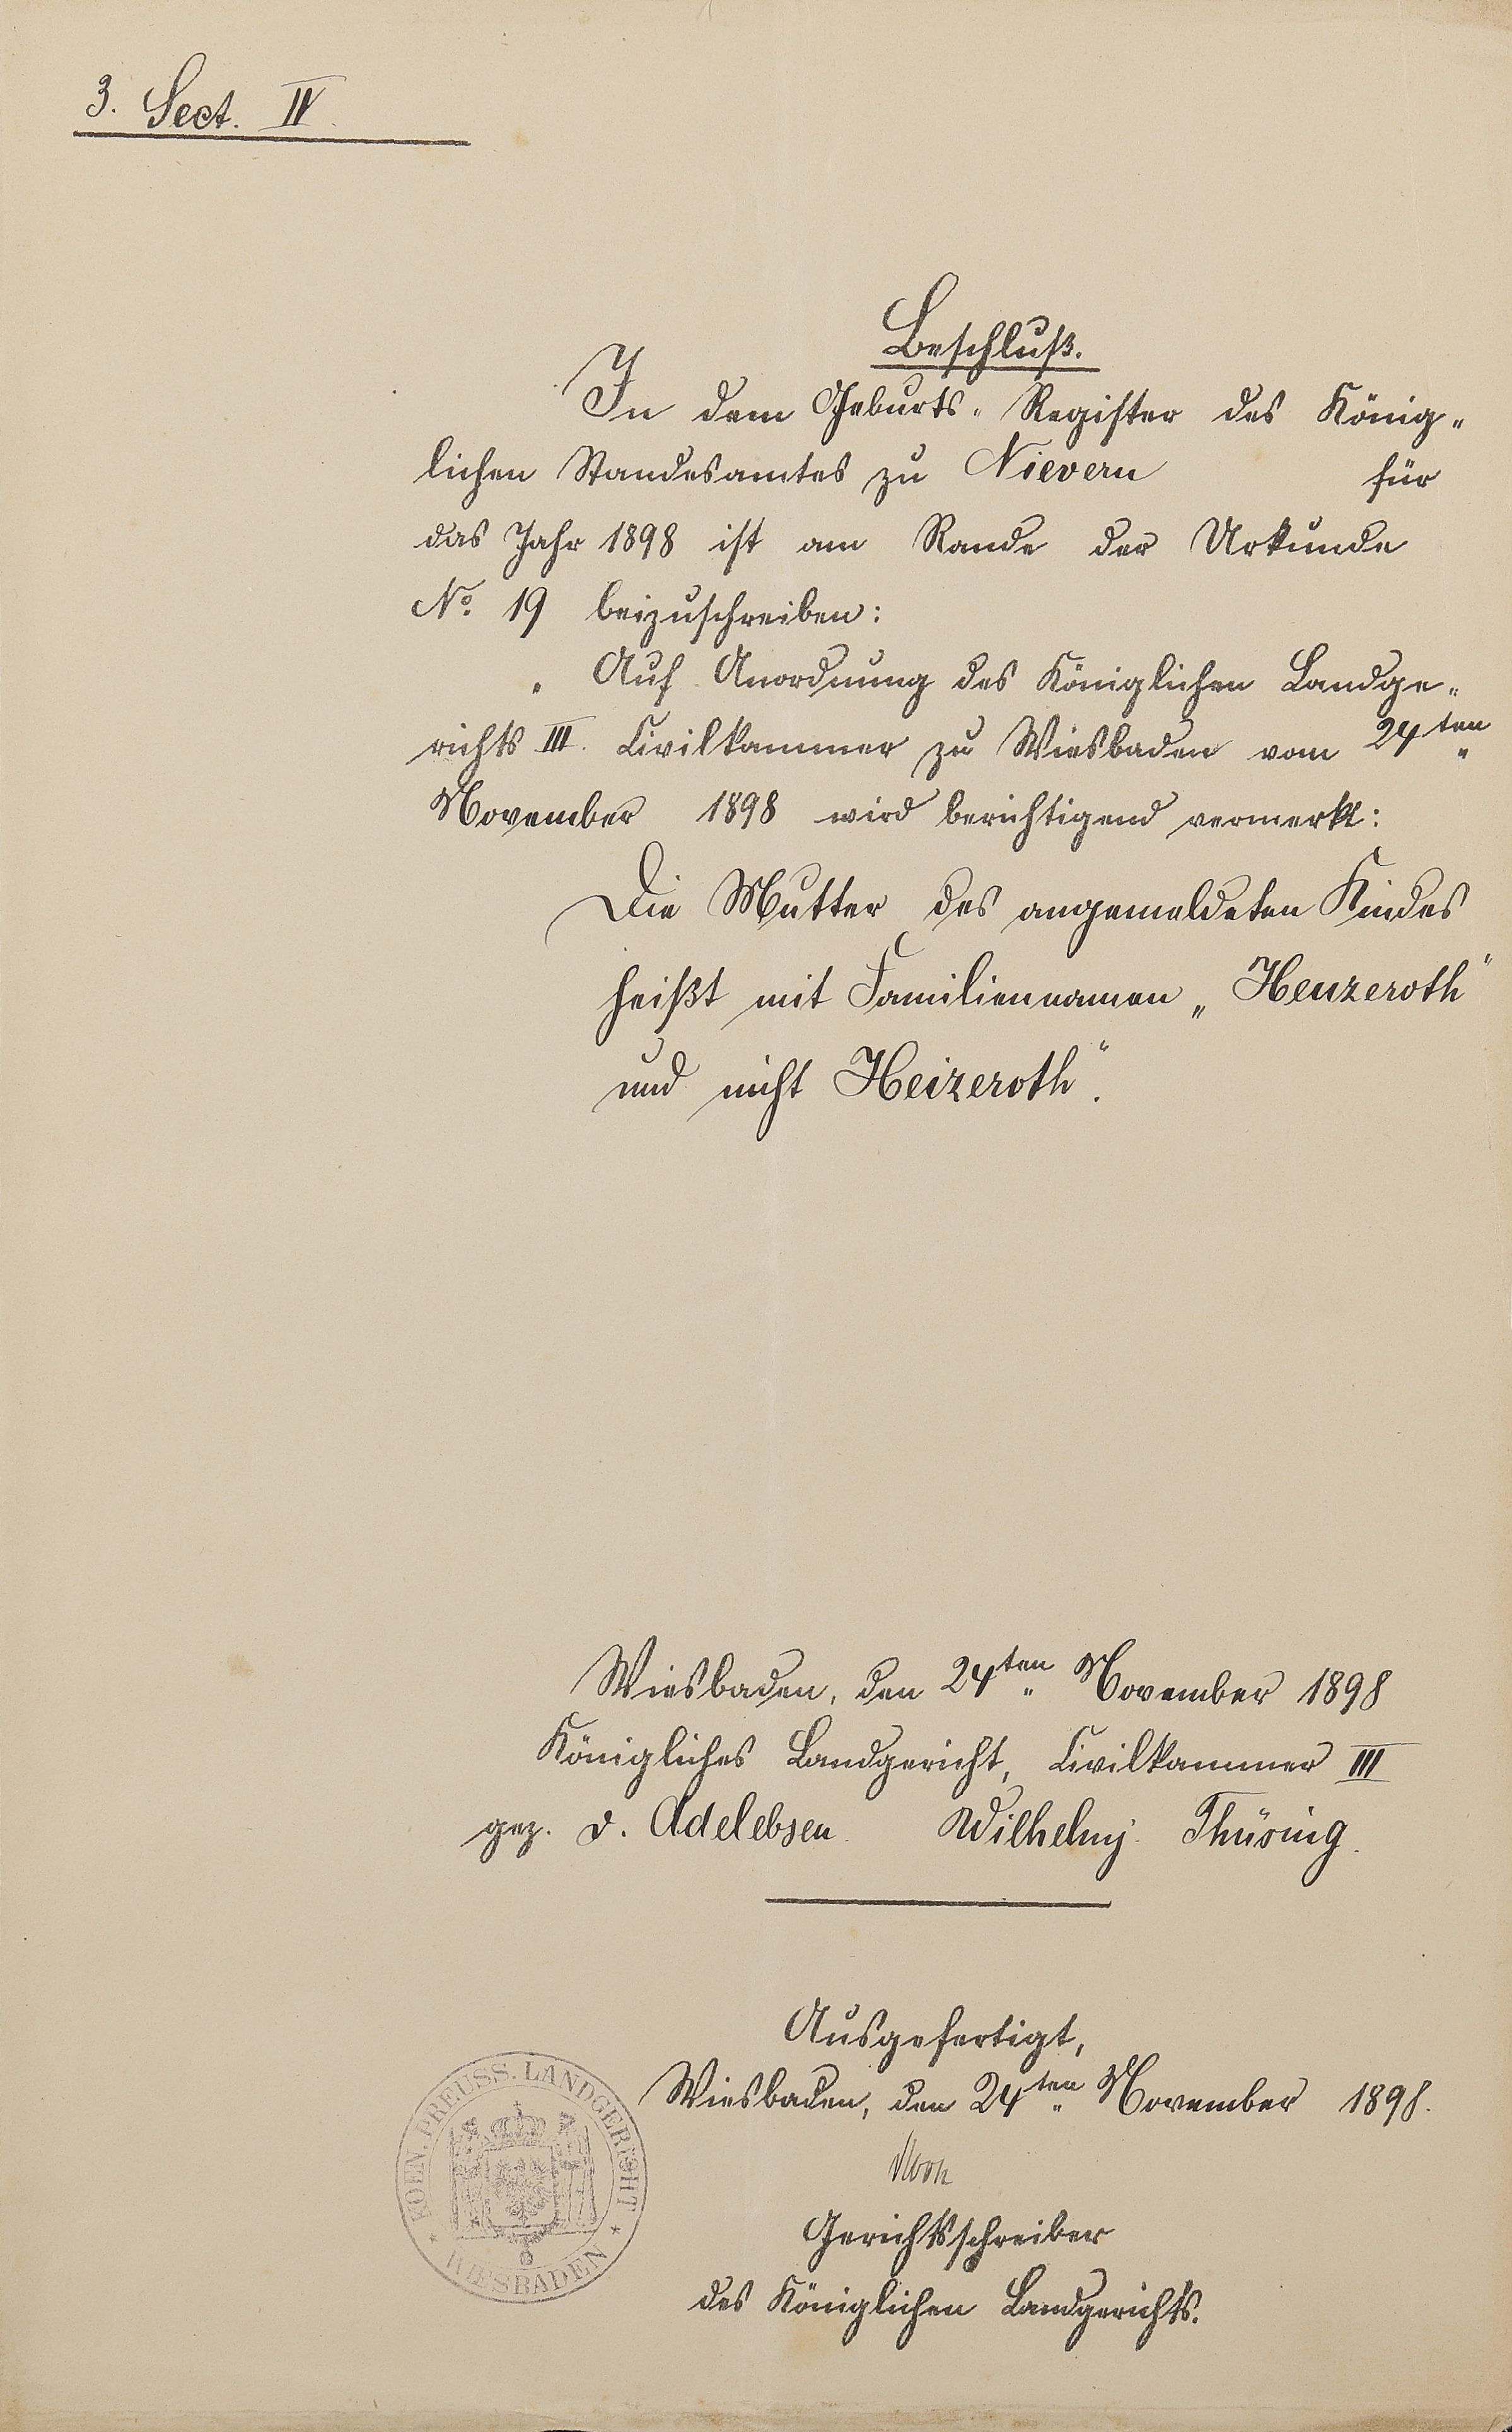 3. Sect. IV.
Beschluß.
In dem Geburts-Register des König-
lichen Standesamtes zu Nievern für
das Jahr 1898 ist am Rande der Urkunde
No. 19 beizuschreiben:
„Auf Anordnung des Königlichen Landge-
richts III. Civilkammer zu Wiesbaden vom 24ten
November 1898 wird berichtigend vermerkt:
Die Mutter des angemeldeten Kindes
heißt mit Familiennamen „Henzeroth"
und nicht Heizeroth".
Wiesbaden, den 24ten November 1898
Königliches Landgericht, Civilkammer III
gez. v. Adelebsen. Wilhelmj. Thüring.
Ausgefertigt,
Wiesbaden, den 24ten November 1898.
Gerichtsschreiber
des Königlichen Landgerichts.
KOEN. PREUSS. LANDGERICHT
* WIESBADEN *